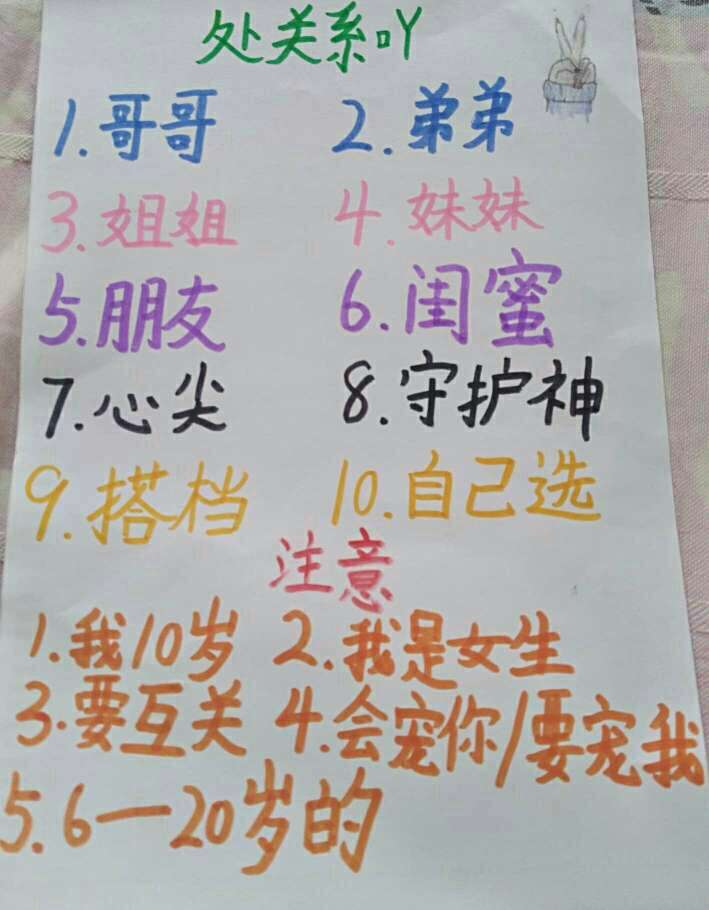 处关系吖
1.哥哥 2.弟弟
3.姐姐 4.妹妹
5.朋友 6.闺蜜
7.心尖 8.守护神
9.搭档 10.自己选
注意
1.我10岁 2.我是女生
3.要互关 4.会宠你/要宠我
5.6一20岁的